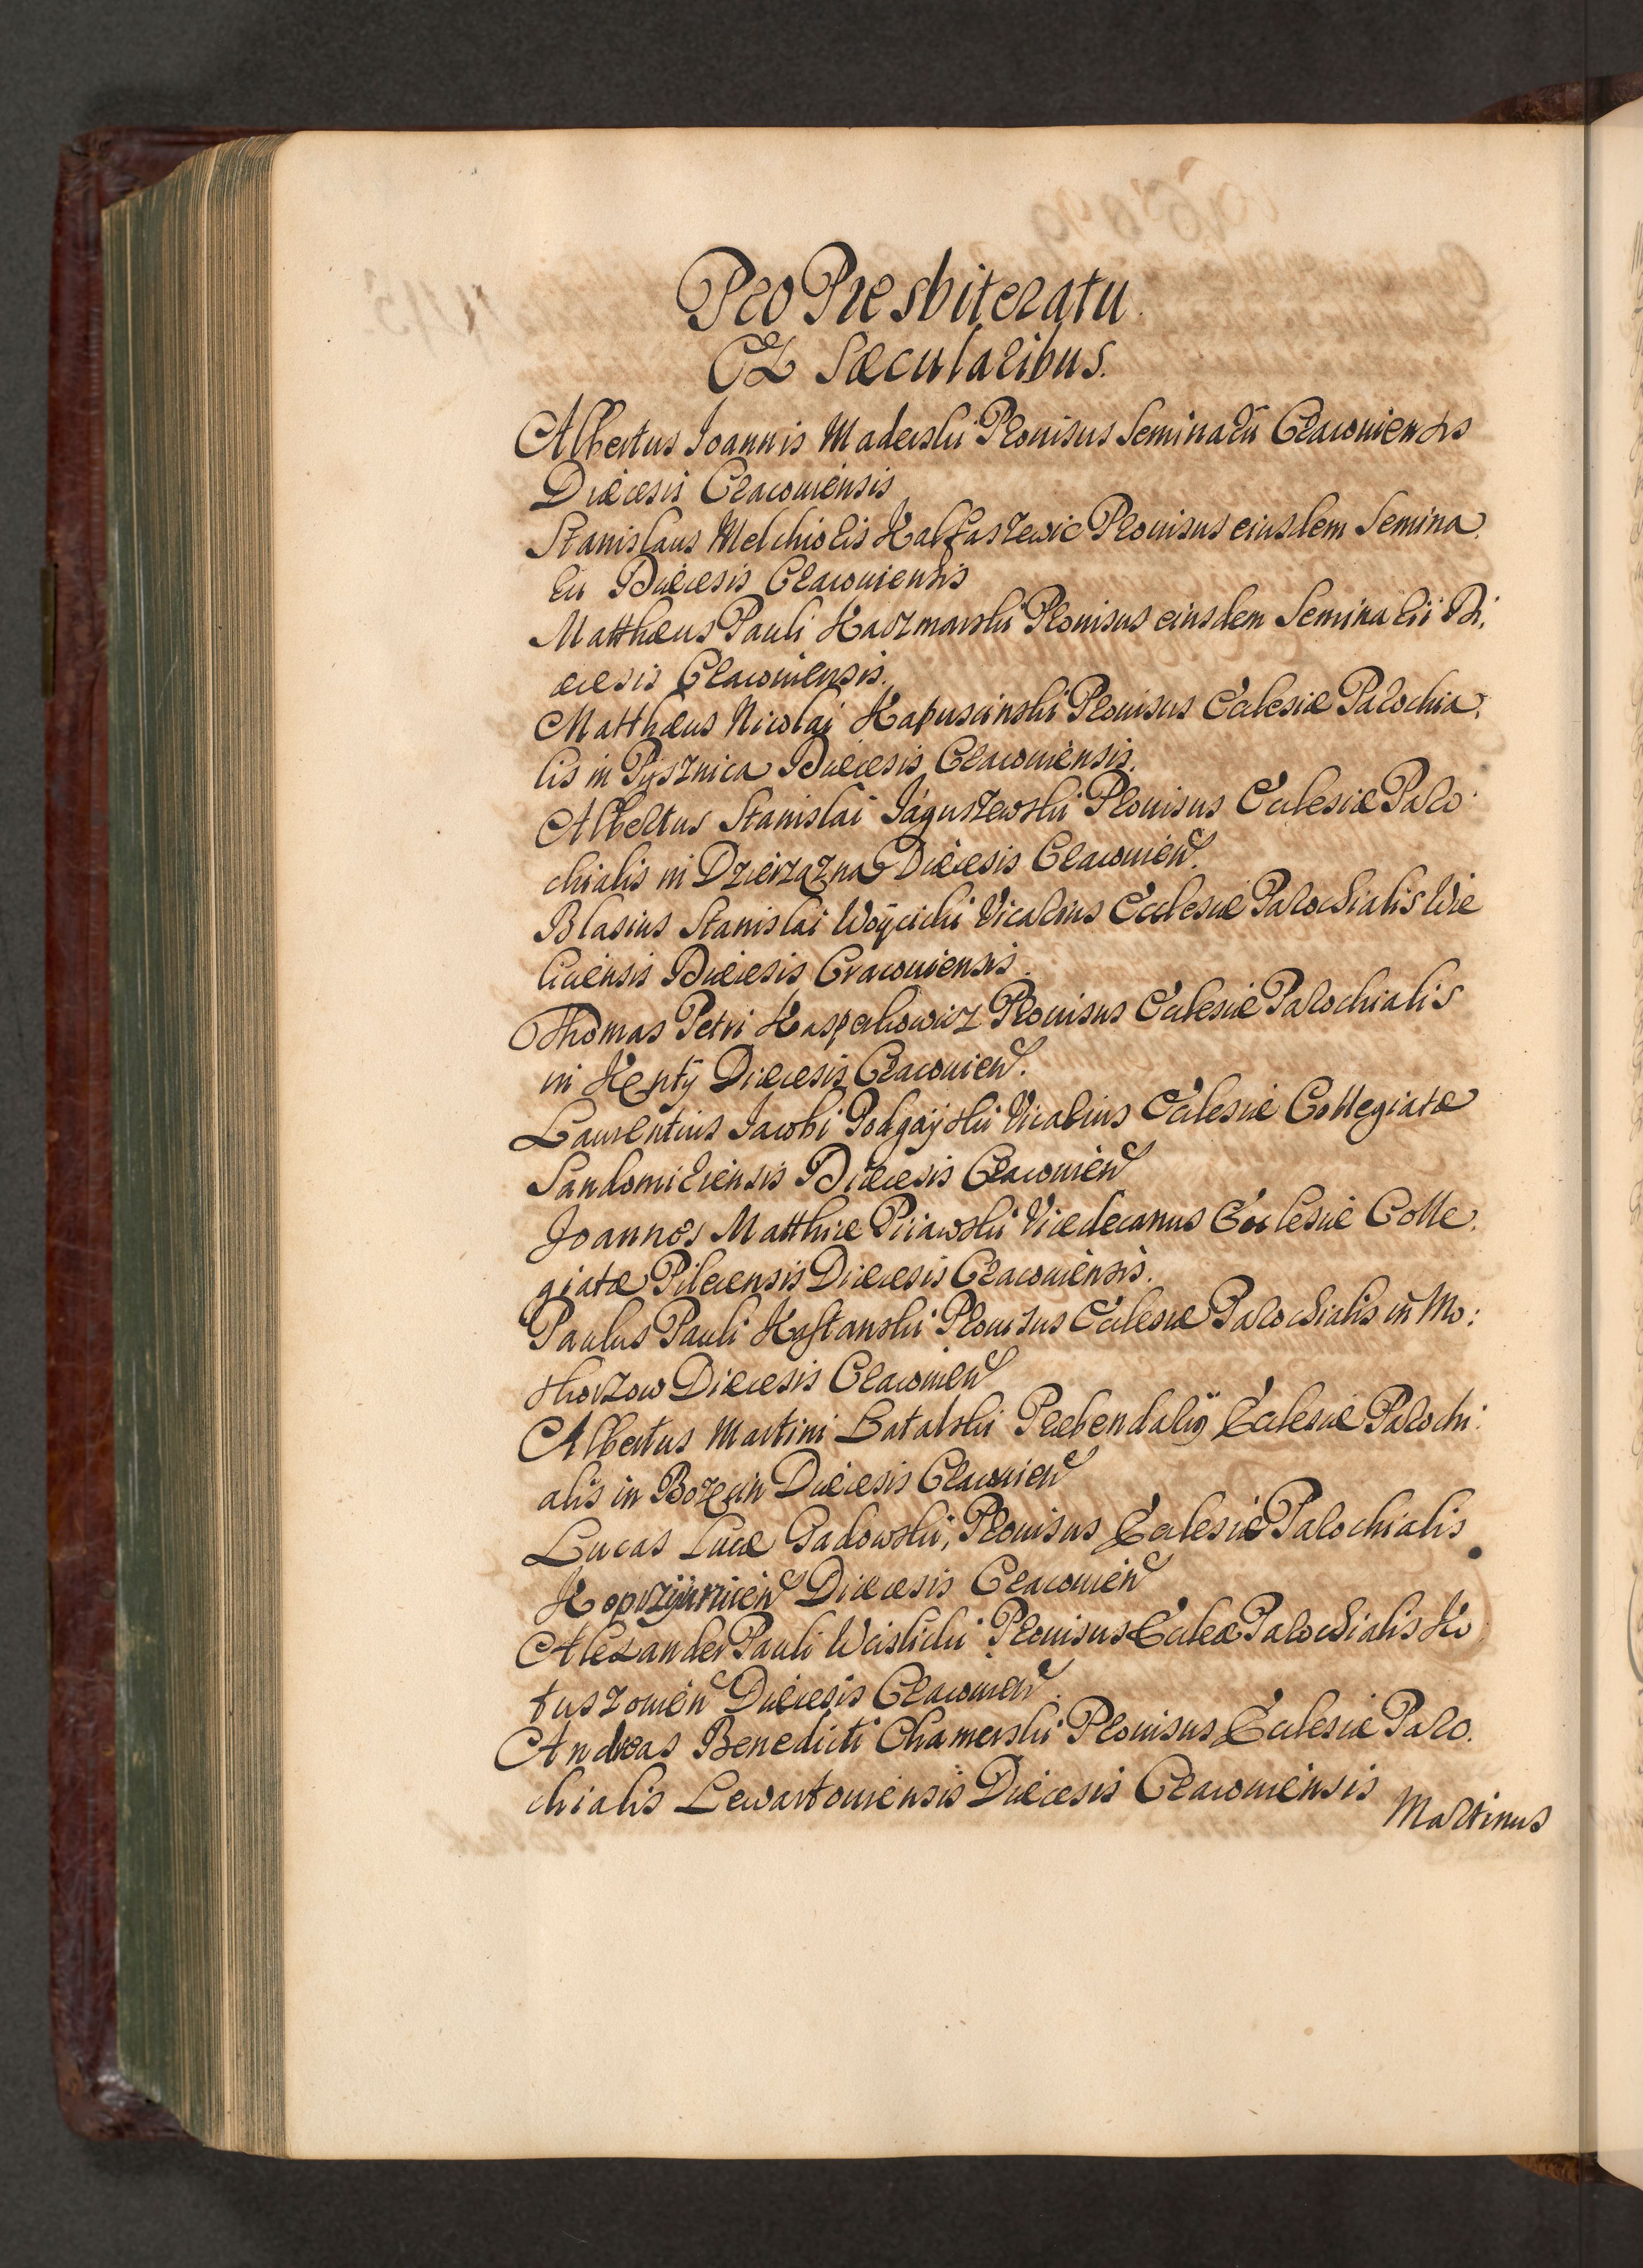 Pro Presbiteratu
Ex Sæcularibus.
Albertus Joannis Maderski Prouisus Seminarii Cracouiensis
Diæcesis Cracouiensis
Stanislaus Melchioris Kalfaszewic Prouisus eiusdem Semina
rii Diæcesis Cracouiensis
Matthæus Pauli Kaczmarski Prouisus eiusdem Seminarii Di:
æcesis Cracouiensis.
Matthæus Nicolai Kapuscinski Prouisus Ecclesiæ Parochia:
lis in Pysznica Diæcesis Cracouiensis.
Albertus Stanislai Jaguszewski Prouisus Ecclesiæ Paro:
chialis in Dzierzązna Diæcesis Cracouien.
Blasius Stanislai Woycicki Vicarius Ecclesiæ Parochialis Wie
liciensis Diæcesis Cracouiensis.
Thomas Petri Kasperkowicz Prouisus Ecclesiæ Parochialis
in Kenty Diæcesis Cracouien.
Laurentius Jacobi Podgayski Vicarius Ecclesiæ Collegiatæ
Sandomiriensis Diæcesis Cracouien
Joannes Matthiæ Pciawski Vicedecanus Ecclesiæ Colle:
giatæ Pilecensis Diæcesis Cracouiensis.
Paulus Pauli Kaftanski Prouisus Ecclesiæ Parochialis in Mo:
skorzow Diæcesis Cracouien
Albertus Martini Batalski Præbendarij Ecclesiæ Parochi:
alis in Bozęcin Diæcesis Cracouien
Lucas Lucæ Gadowski, Prouisus Ecclesiæ Parochialis
Koprzywnicen Diæcesis Cracouien
Alexander Pauli Weislicki Prouisus Ecclæ Parochialis Ko
tuszouien Diæcesis Cracouien.
Andreas Benedicti Chamerski Prouisus Ecclesiæ Paro:
chialis Lewartouiensis Diæcesis Cracouiensis
Martinus